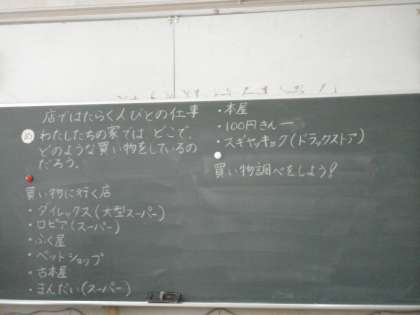 店ではたらく人びとの仕事
め わたしたちの家では どこで、
どのような買い物をしているの
だろう。
買い物に行く店
・ダイレックス(大型スーパー)
・ロピア(スーパー)
・ふく屋
・ペットショップ
・古本屋
・さんだい(スーパー)
・本屋
・100円きん一
・スギヤッキョク(ドラックストア)
買い物調べをしよう?